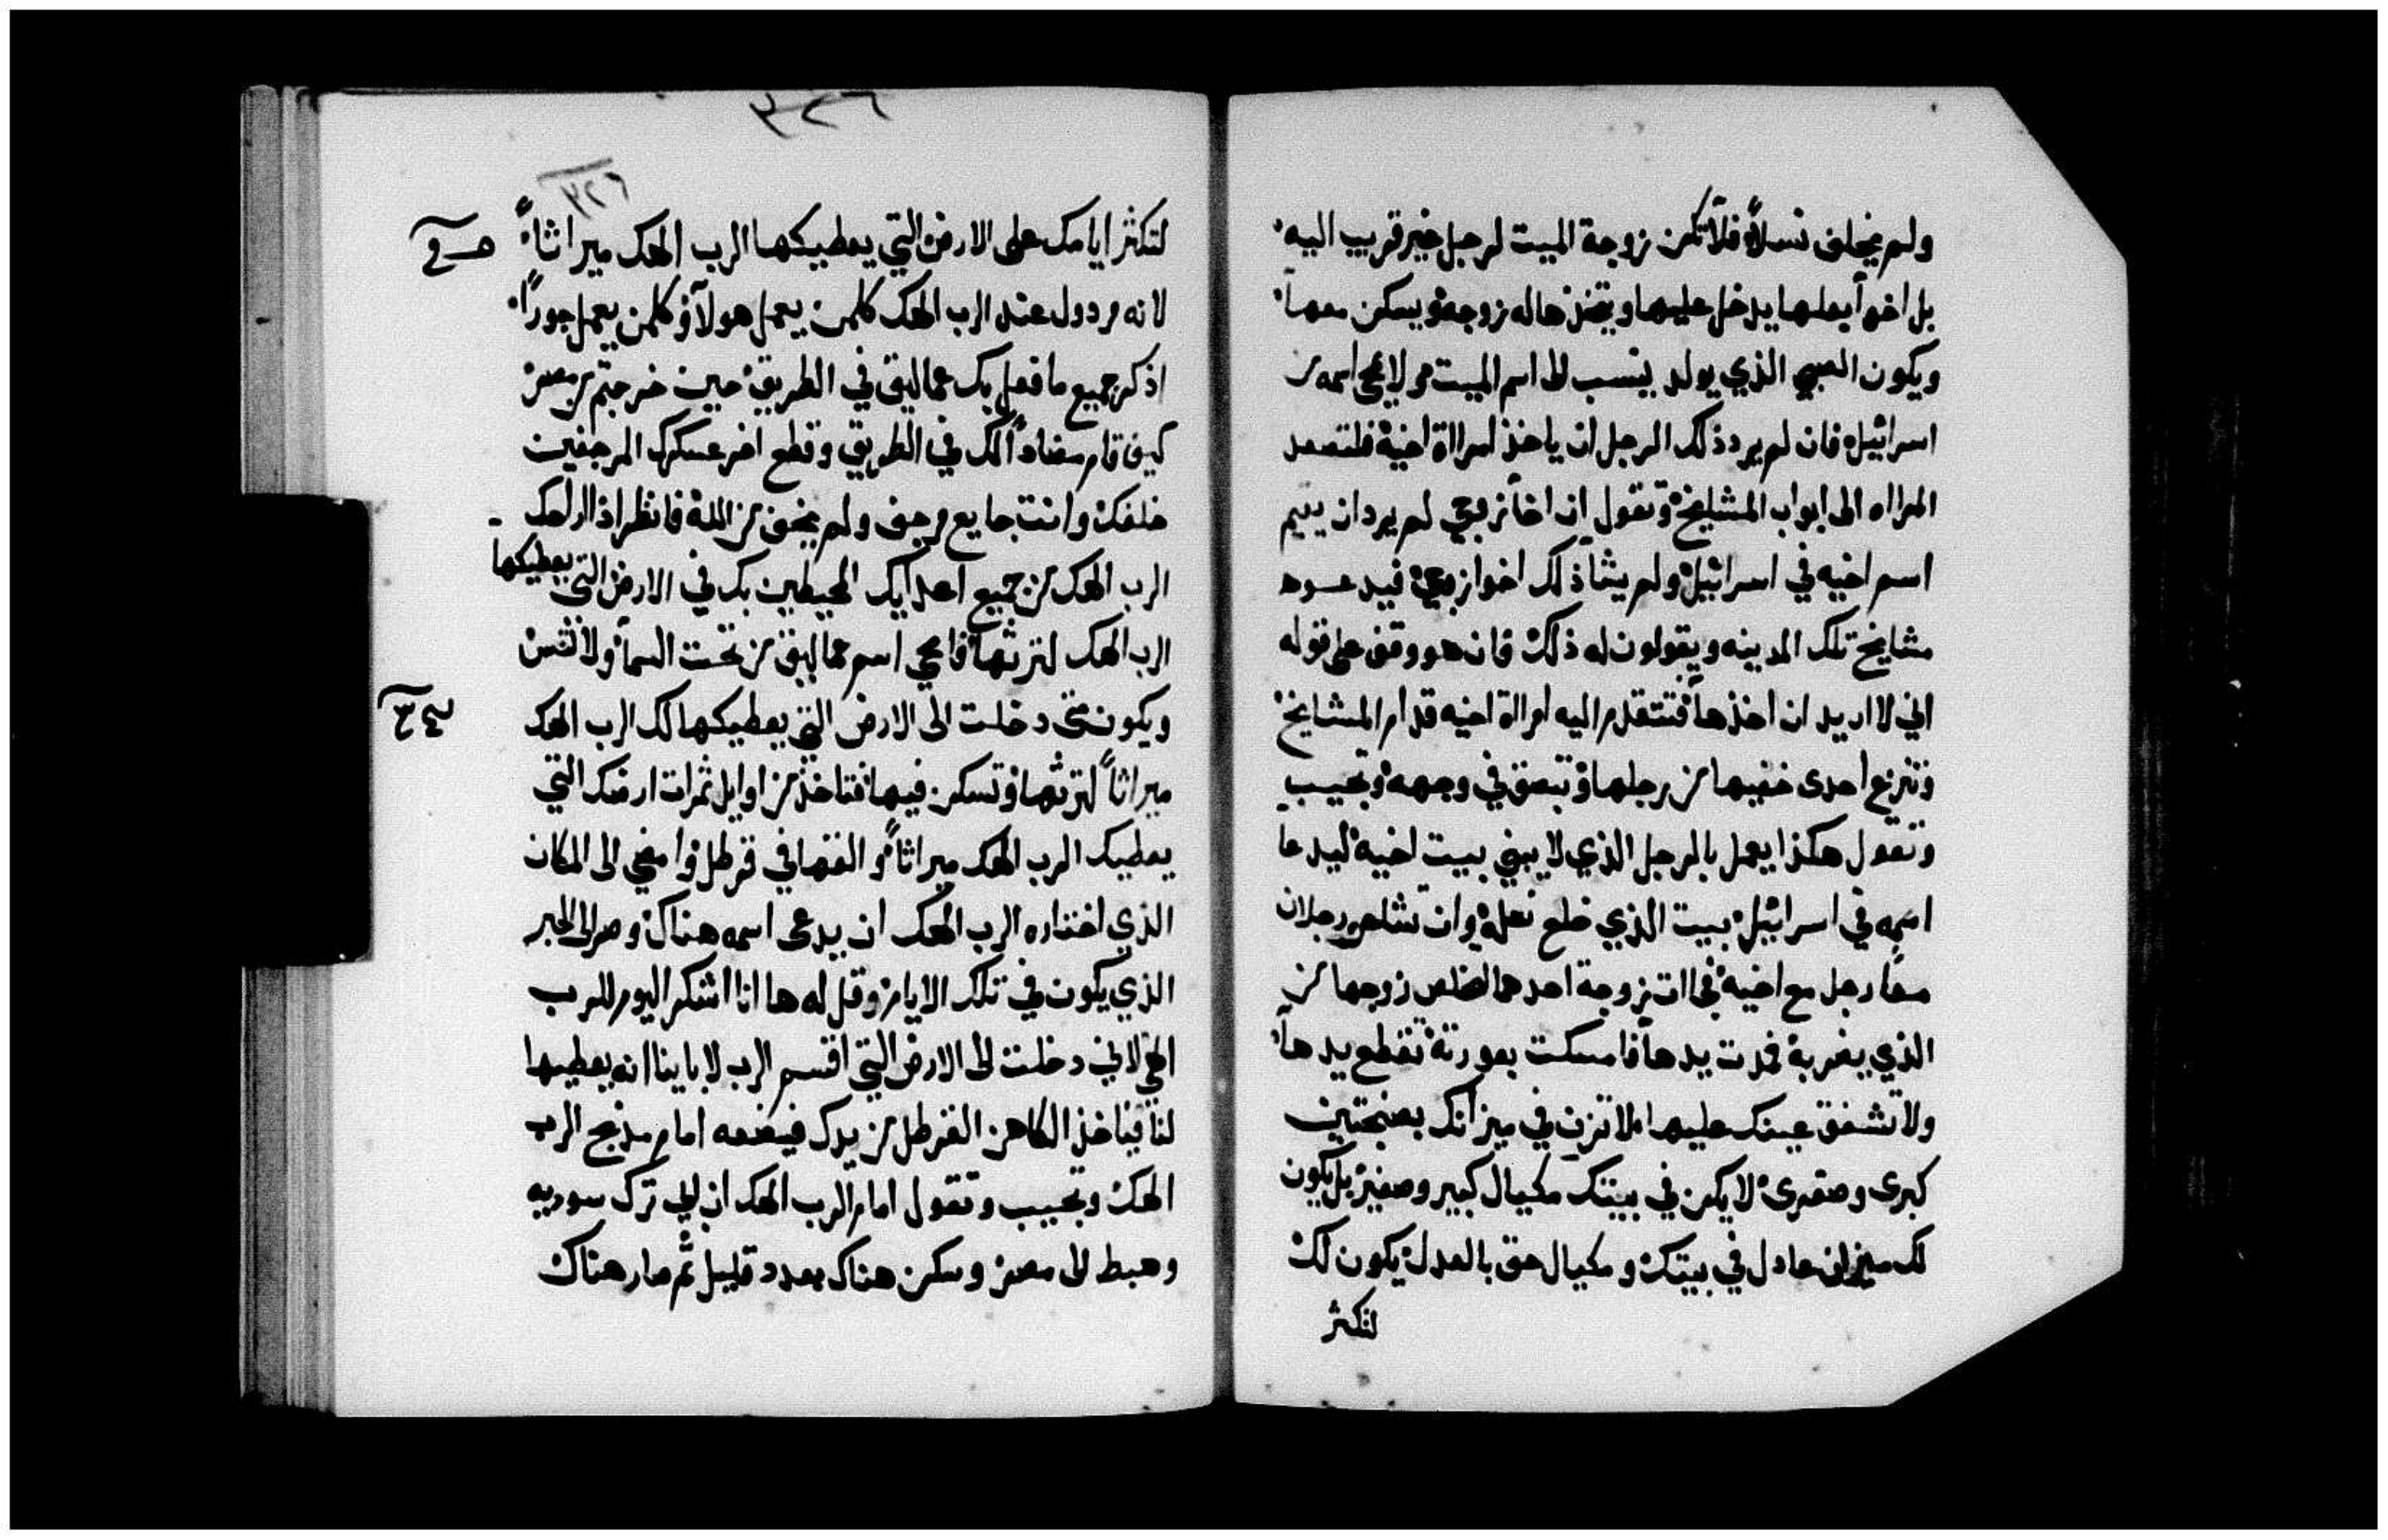 ولم يخلف نسلاً فلا تكن زوجة الميت لرجل غير قريب اليه
بل اخوا بعلها يدخل عليها ويتخذها له زوجة ويسكن معها
ويكون الصبي الذي يولد ينسب الى اسم الميت ولا يمحى اسمه من
اسرائيل فان لم يرد ذلك الرجل ان ياخذ امراة اخيه فلتصعد
المراه الى ابواب المشايخ وتقول ان اخا زوجي لم يرد ان يقيم
اسم اخيه في اسرائيل ولم يشا ذلك اخوا زوجي فيدعوه
مشايخ تلك المدينه ويقولون له ذلك فان هو وقف على قوله
اني لا اريد ان اخذها فتتقدم اليه امراة اخيه قدام المشايخ
وتنزع احدى خفيها من رجلها وتبصق في وجهه وتجيب
وتقول هكذا يعمل بالرجل الذي لا يبني بيت اخيه ليدعا
اسمه في اسرائيل بيت الذي خلع نعله وان تشاجر رجلان
معًا رجل مع اخيه فجاات زوجة احدهما لتخلص زوجها من
الذي يضربه فمدت يدها فامسكت بعورته تقطع يدها
ولا تشفق عينك عليها لا تزن في ميزانك بصنجتين
كبرى وصغرى لا يكن في بيتك مكيال كبير وصغير بل يكون
لك ميزان عادل في بيتك ومكيال حق بالعدل يكون لك
لتكثر
٣٢٦
٣٢٦
لتكثر ايامك على الارض التي يعطيكها الرب الهك ميراثاً
لانه مردول عند الرب الهك كلمن يعمل هولاء وكلمن يعمل جورًا
اذكر جميع ما فعل بك عماليق في الطريق حين خرجتم من مصر
كيف قام مضاداً لك في الطريق وقطع اخر عسكرك المرجفين
خلفك وانت جايع مرجف ولم يخف من الله فانظر اذا اراحك
الرب الهك من جميع اعدايك المحيطين بك في الارض التي يعطيكها
الرب الهك لترثها فامحي اسم عماليق من تحت السما ولا تنس
ويكون متى دخلت الى الارض التي يعطيكها لك الرب الهك
ميراثاً لترثها وتسكن فيها فتاخذ من اوايل ثمرات ارضك التي
يعطيك الرب الهك ميراثاً والقها في قرطل وامضي الى المكان
الذي اختاره الرب الهك ان يدعى اسمه هناك وصر الى الحبر
الذي يكون في تلك الايام وقل له ها انا اشكر اليوم للرب
الهي لاني دخلت الى الارض التي اقسم الرب لاباينا انه يعطيها
لنا فياخذ الكاهن القرطل من يدك فيضعه امام مذبح الرب
الهك وتجيب وتقول امام الرب الهك ان ابي ترك سوريه
وهبط الى مصر وسكن هناك بعدد قليل ثم صار هناك